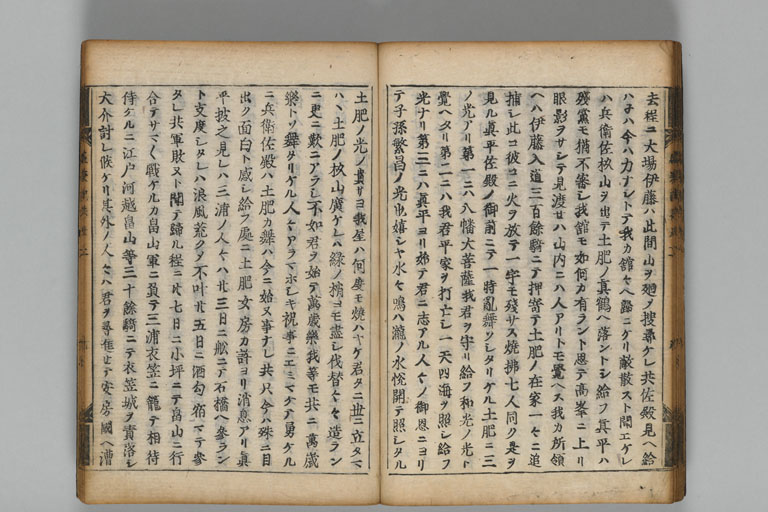 去程ニ大場伊藤ハ此間山ヲ廻ノ搜尋ケレ共佐殿見ヘ給
ハネハ今ハ力ナシトテ我カ舘々ヘ歸ニケリ敵散スト聞エケレ
ハ兵衛佐杉山ヲ出テ土肥ノ真鶴ヘ落ントシ給フ真平ハ
殘黨モ猶不審シ我舘モ如何カ有ラント思テ高峯ニ上リ
眼影ヲサシテ見渡セハ山内ニハ人アリトモ覺ヘス我カ所領
ヘハ伊藤入道三百余騎ニテ押寄テ土肥ノ在家一々ニ追
捕シ此コ彼コニ火ヲ放テ一宇モ殘サス燒拂七人同ク是ヲ
見ル真平佐殿ノ御前ニテ一時亂舞ソシタリケル土肥ニ三
ノ光アリ第一ニハ八幡大菩薩我君ヲ守リ給フ和光ノ光ト
覺ヘタリ第二ニハ我君平家ヲ打亡シ一天四海ヲ照シ給フ
光ナリ第三ニハ真平ヨリ始テ君ニ志アル人々ノ御恩ニヨリ
テ子孫繁昌ノ光也嬉シヤ水々鳴ハ瀧ノ水悦開テ照シタル
土肥ノ光ノ貴サヨ我屋ハ何度モ燒ハヤケ君タニ世ニ立タマ
ハヽ土肥ノ杉山廣ケレハ緑ノ梢ヨモ盡シ伐替々々造ラン
ニ更ニ歎ニアラシ不如君ヲ始テ萬歳樂我等モ共ニ萬歳
樂トソ舞タリケル人々アラマホシキ祝事ニエミマケテ勇ケル
ニ兵衛佐殿ハ土肥カ舞ハ今ニ始ヌ事ナレ共只今ハ殊ニ目
出ク面白ト感シ給フ處ニ土肥女房カ許ヨリ消息アリ真
平披之見レハ三浦ノ人々ハ廿三日ニ舩ニテ石橋ヘ参ラン
ト支度シタレハ浪風荒クタ不叶廿五日ニ酒匂宿マテ参
タレ共軍敗ヌト聞テ歸ル程ニ廿七日ニ小坪ニテ畠山ニ行
合テサマ〱戰ケルカ畠山軍ニ負テ三浦衣笠ニ籠テ相待
侍ケルニ江戸河越畠山等三千餘騎ニテ衣笠城ヲ責落シ
大介討レ候ケリ其外ノ人々ハ君ヲ尋進セテ安房國ヘ漕